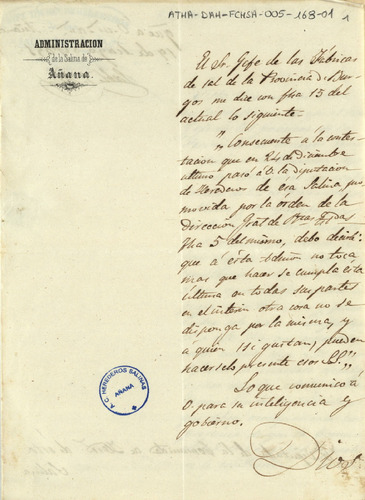 ATHA-DAH-FCHSA-005-168-01
1
ADMINISTRACION
de la Salina de
Añana.
El Sr. Gefe de las Fábricas
de sal de la Provincia de Bur-
gos me dice con fha 15 del
actual lo siguiente-
"Consecuente á la contes-
tacion que en 24 de diciembre
ultimo pasó á V. la Diputacion
de Herederos de esa Salina pro-
movida por la orden de la
Direccion Gral de Rtas
fha 5 del mismo, debo decirle
que á esta Admon no toca
mas que hacer se cumpla esta
ultima en todas sus partes
en el interin otra cosa no se
disponga por la misma, y
á quien si gustan, pueden
hacerselo presente esos S.S."
Lo que comunico á
V. para su inteligencia y
gobierno.
Dios
A.C. HEREDEROS SALINAS
AÑANA